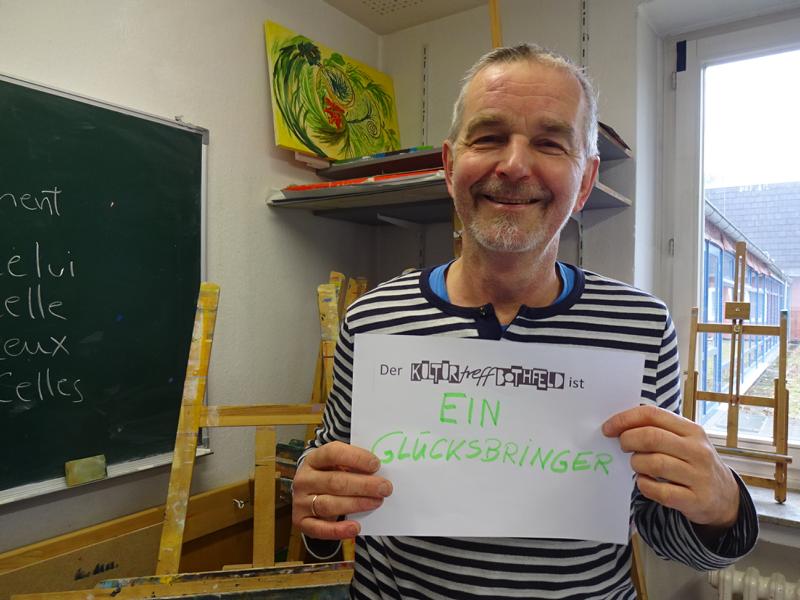 celui
celle
ceux
celles
Der KULTURtreff BOTHFELD ist
EIN
GLÜCKSBRINGER